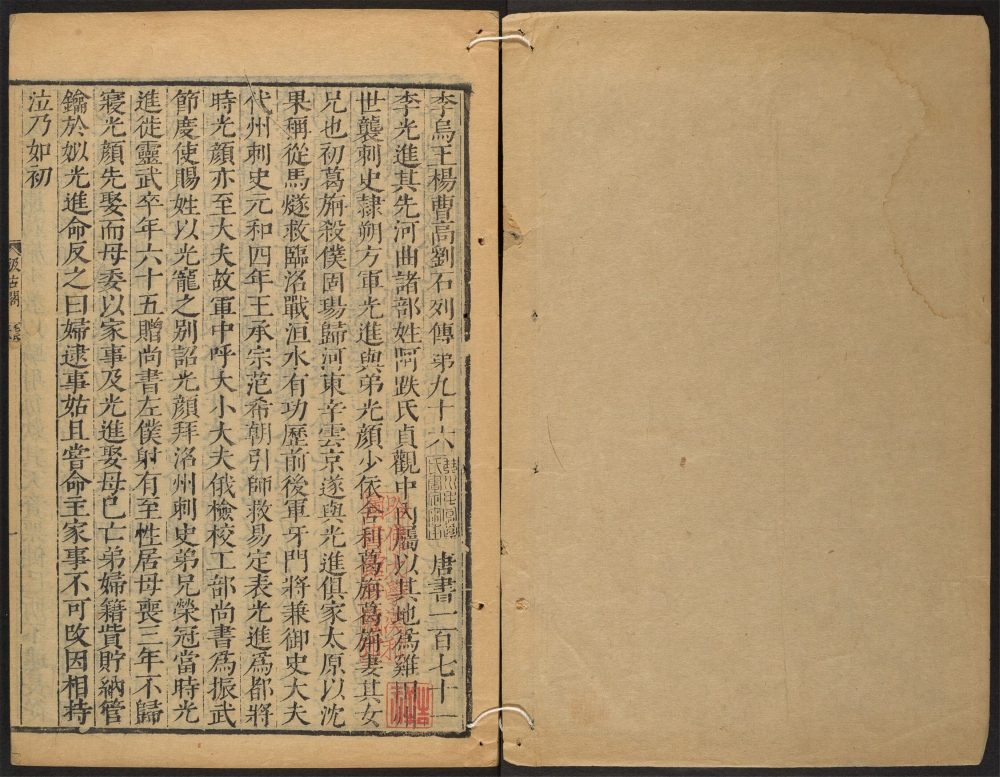 李烏王楊曹高劉石列傳第九十六 唐書一百七十一
李光進其先河曲諸部姓阿跌氏貞觀中內屬以其地爲雞田州
世襲刺史隷朔方軍光進與弟光顏少依舍利葛旃葛旃妻其女
兄也初葛旃殺僕固瑒歸河東辛雲京遂與光進俱家太原以沈
果稱從馬燧救臨洺戰洹水有功歷前後軍牙門將兼御史大夫
代州刺史元和四年王承宗范希朝引師救易定表光進爲都將
時光顏亦至大夫故軍中呼大小大夫俄檢校工部尚書爲振武
節度使賜姓以光寵之別詔光顏拜洺州刺史弟兄榮冠當時光
進徙靈武卒年六十五贈尚書左僕射有至性居母喪三年不歸
寢光顏先娶而母委以家事及光進娶母已亡弟婦籍貲貯納管
鑰於姒光進命反之曰婦逮事姑且嘗命主家事不可改因相持
泣乃如初
汲古閣